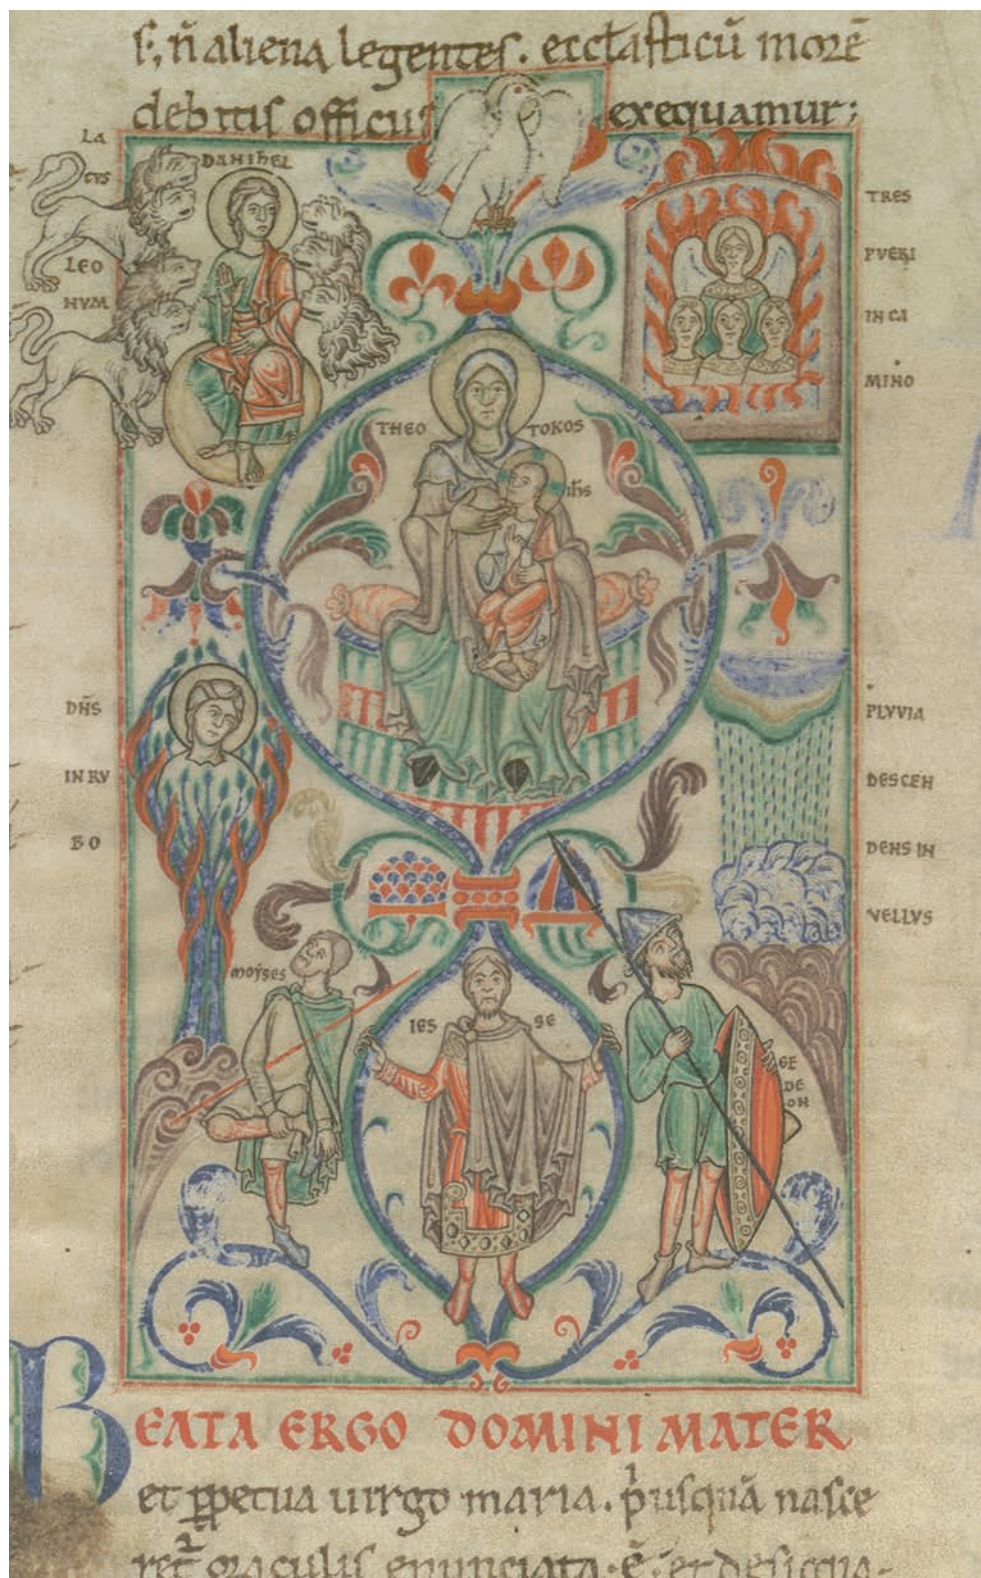 s; n̄ aliena legentes. eccl̄asticū morē
debitis officiis exequamur;
LA
CVS
LEO
NVM
DANIHEL
TRES
PVERI
IN CA
MINO
THEO TOKOS
ih̄s
DN̄S
IN RV
BO
PLVVIA
DESCEN
DENS IN
VELLVS
MOYSES
IES SE
GE
DE
ON
BEATA ERGO DOMINI MATER
et ꝑpetua uirgo maria. p̍usquā nasce
ret᷑ oraculis enunciata. ē. et designa-